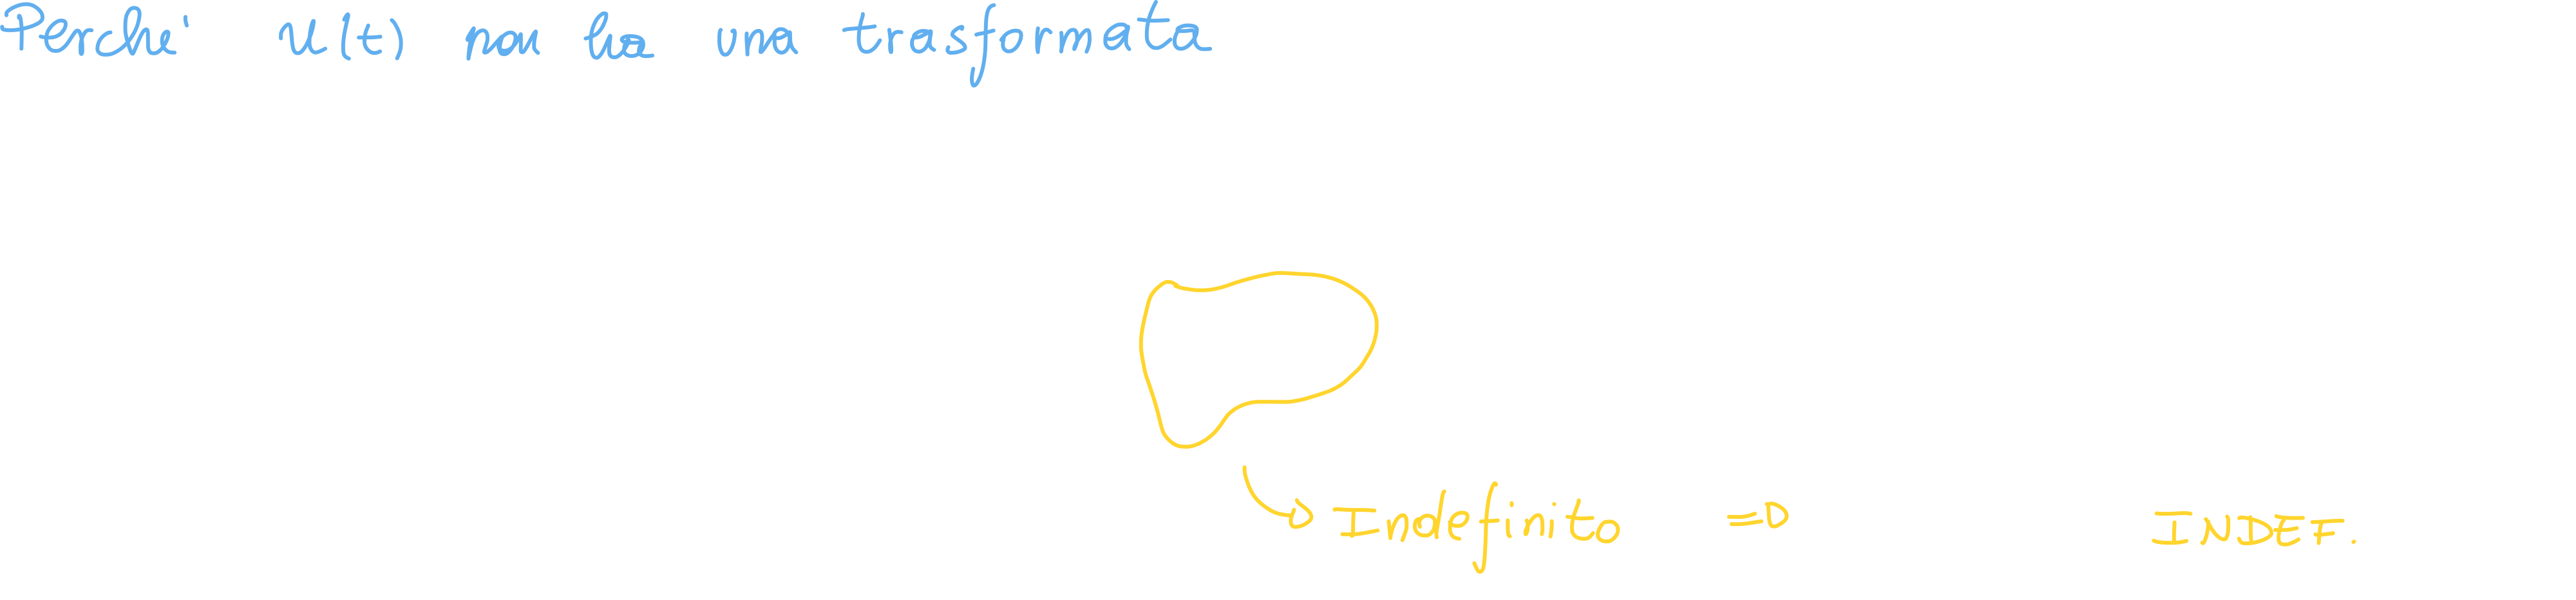 Perche' u(t) non ha una trasformata
Indefinito => INDEF.